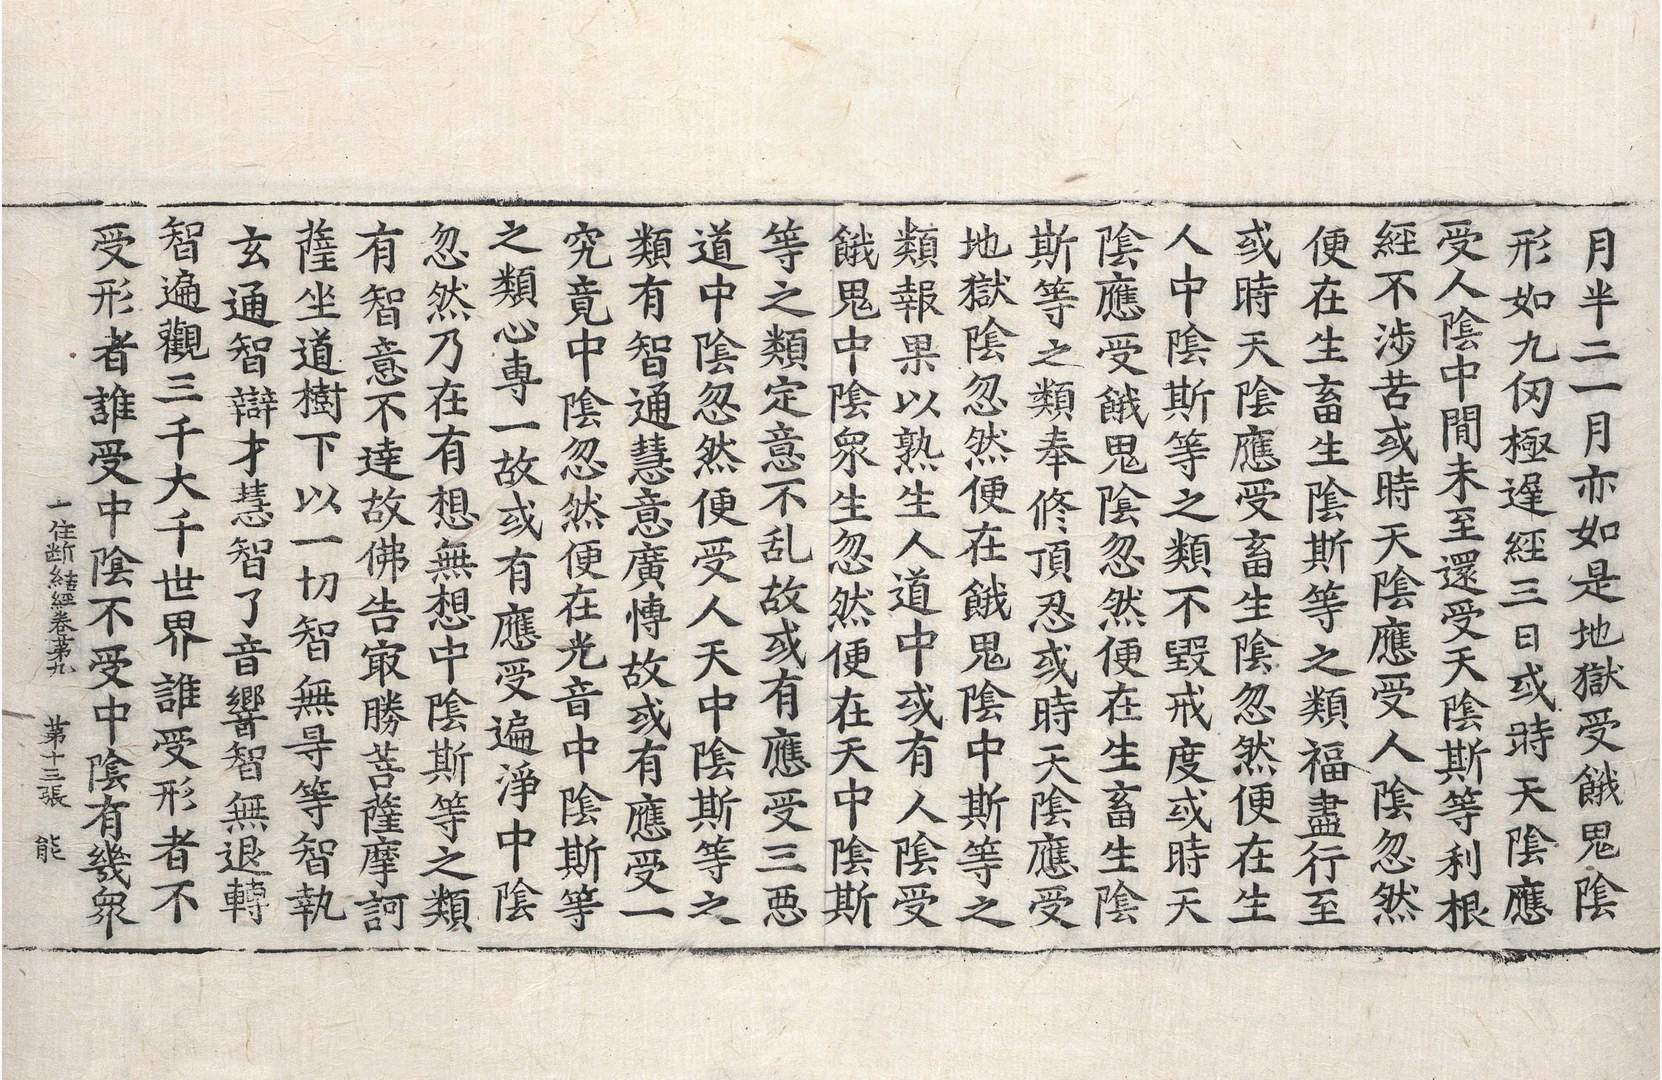 月半二一月亦如是地獄受餓鬼陰
形如九仞極遅經三日或時天陰應
受人陰中間未至還受天陰斯等利根
經不涉苦或時天陰應受人陰忽然
便在生畜生陰斯等之類福盡行至
或時天陰應受畜生陰忽然便在生
人中陰斯等之類不毀戒度或時天
陰應受餓鬼陰忽然便在生畜生陰
斯等之類奉修頂忍或時天陰應受
地獄陰忽然便在餓鬼陰中斯等之
類報果以熟生人道中或有人陰受
餓鬼中陰衆生忽然便在天中陰斯
等之類定意不乱故或有應受三惡
道中陰忽然便受人天中陰斯等之
類有智通慧意廣慱故或有應受一
究竟中陰忽然便在光音中陰斯等
之類心專一故或有應受遍淨中陰
忽然乃在有想無想中陰斯等之類
有智意不達故佛告㝡勝菩薩摩訶
薩坐道樹下以一切智無㝵等智執
玄通智辯才慧智了音響智無退轉
智遍觀三千大千世界誰受形者不
受形者誰受中陰不受中陰有幾衆
十住断結經卷第九　第十三張　能